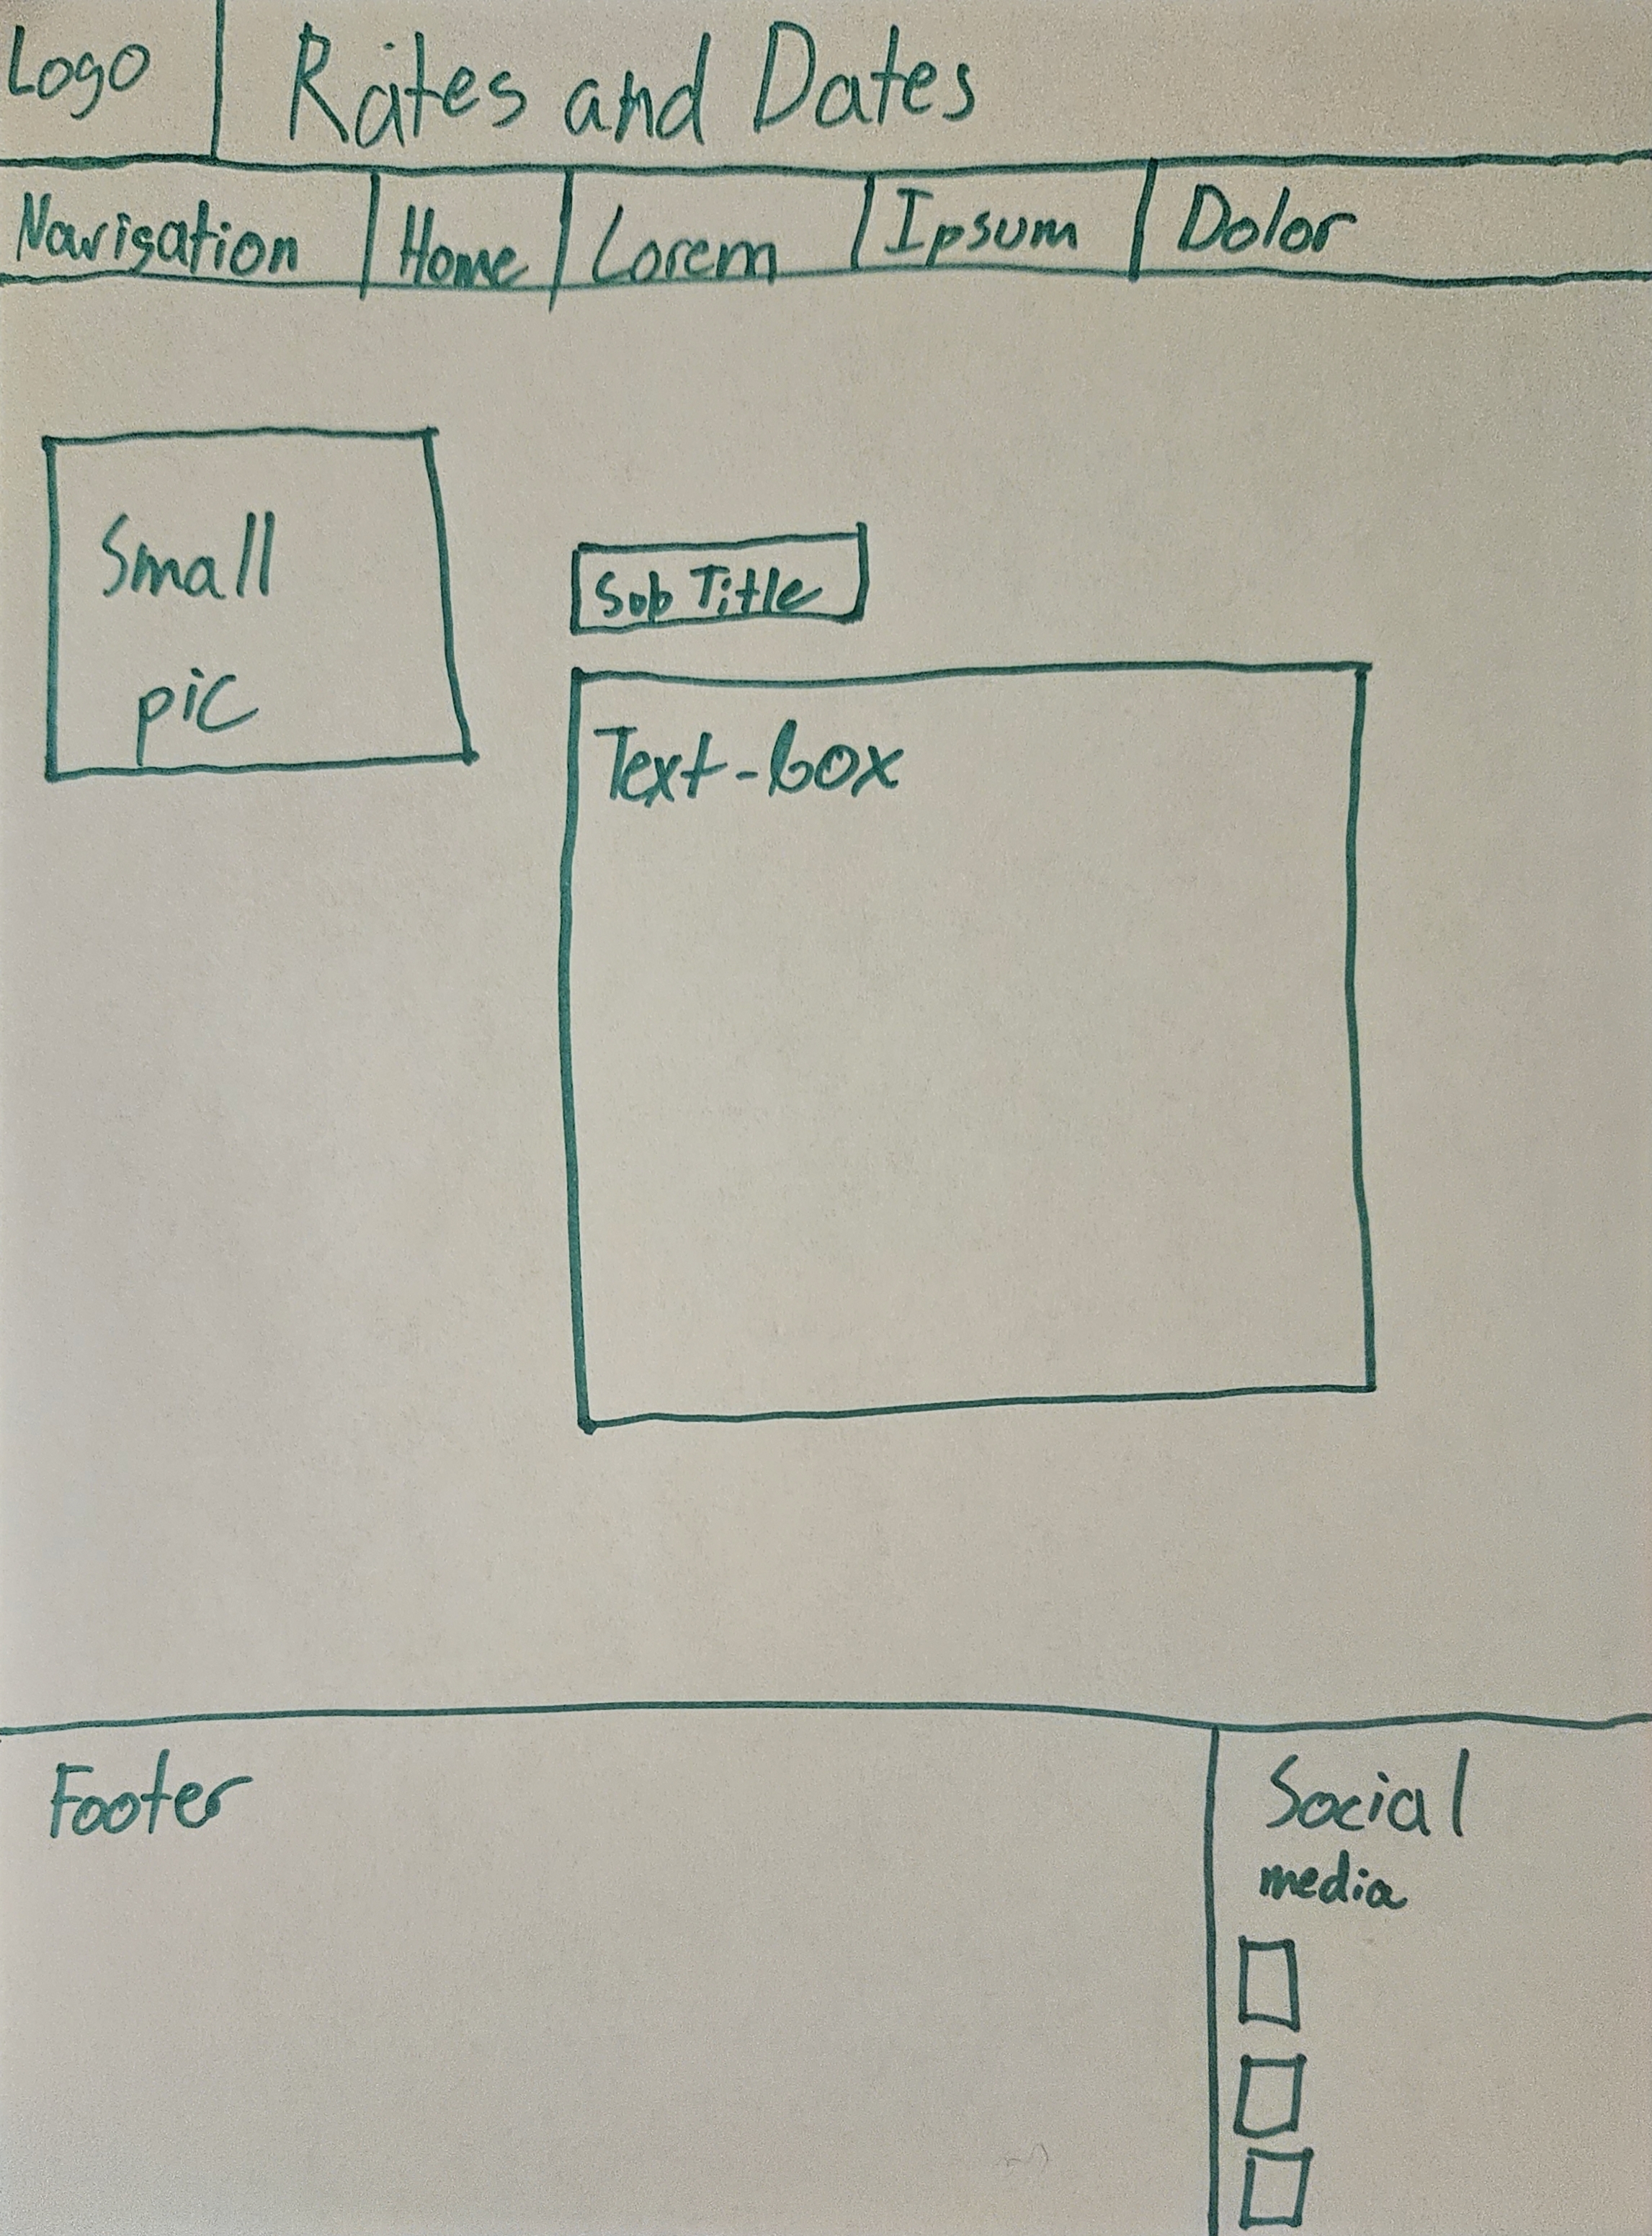 Logo
Rates and Dates
Navigation
Home
Lorem
Ipsum
Dolor
Small
pic
Sub Title
Text-box
Footer
Social
media